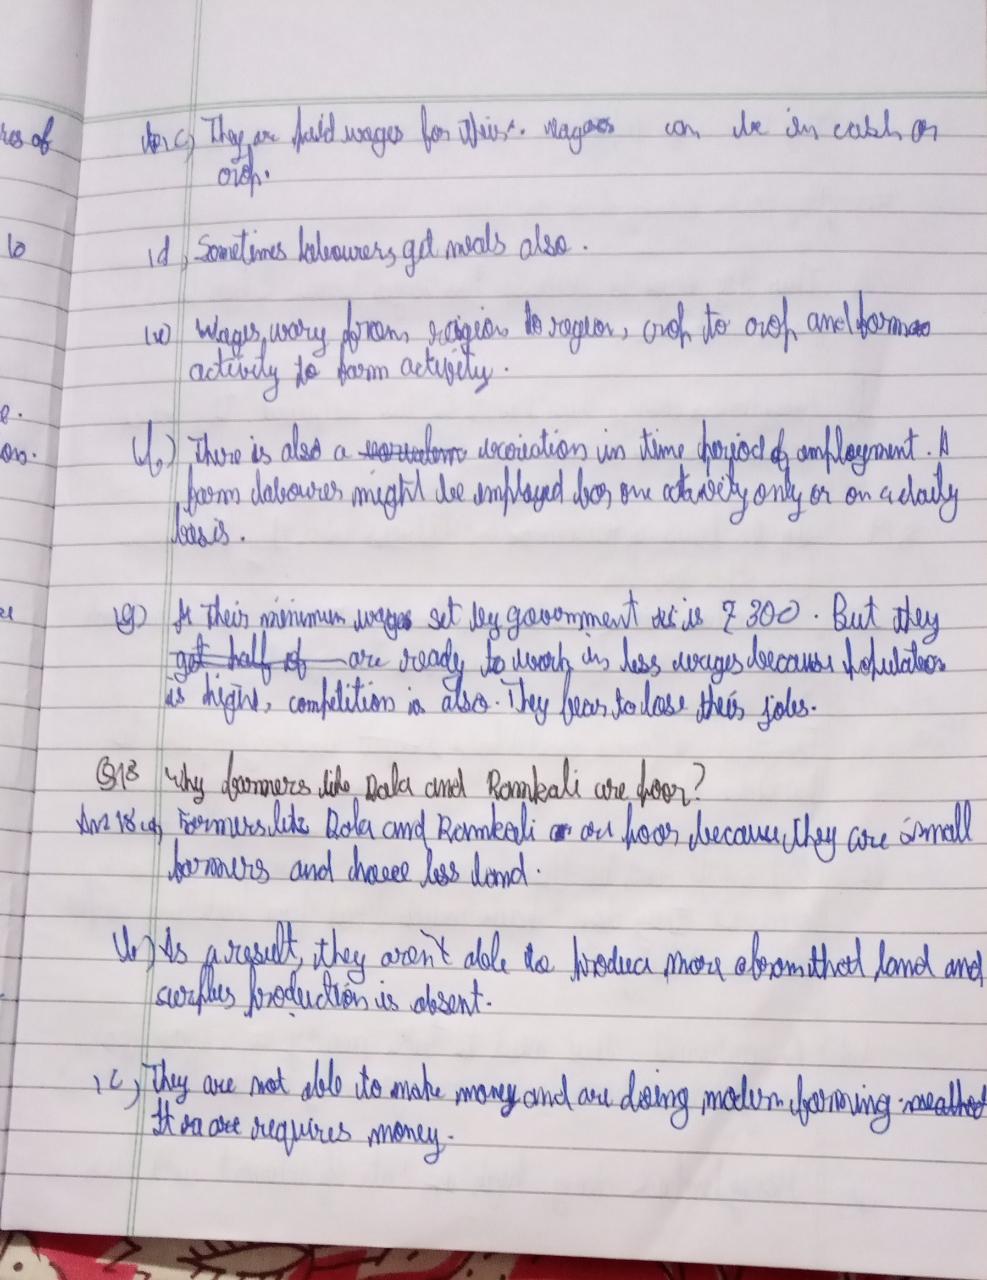 res of
c) They are paid wages for this. wages can be in cash or
crop.
to
d) Sometimes labourers get meals also.
e) Wages vary from region to region, crop to crop and farm
activity to farm activity.
e.
on.
f.) There is also a variation in time period of employment. A
farm labourer might be employed for one activity only or on a daily
basis.
g) Their minimum wages set by government is ₹ 300. But they
got half of are ready to work in less wages because population
is high, competition is also. They fear to lose their jobs.
Q18 Why farmers like Dala and Ramkali are poor?
Ans 18 a) Farmers like Dala and Ramkali are poor because they are small
farmers and have less land.
b) As a result, they aren't able to produce more from that land and
surplus production is absent.
c) They are not able to make money and are doing modern farming method
It requires money.